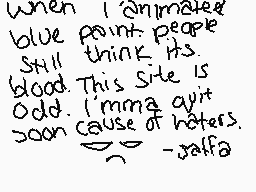 when I animated
blue paint people
still think its
blood. This site is
odd. I'mma quit
soon cause of haters.
-Jaffa